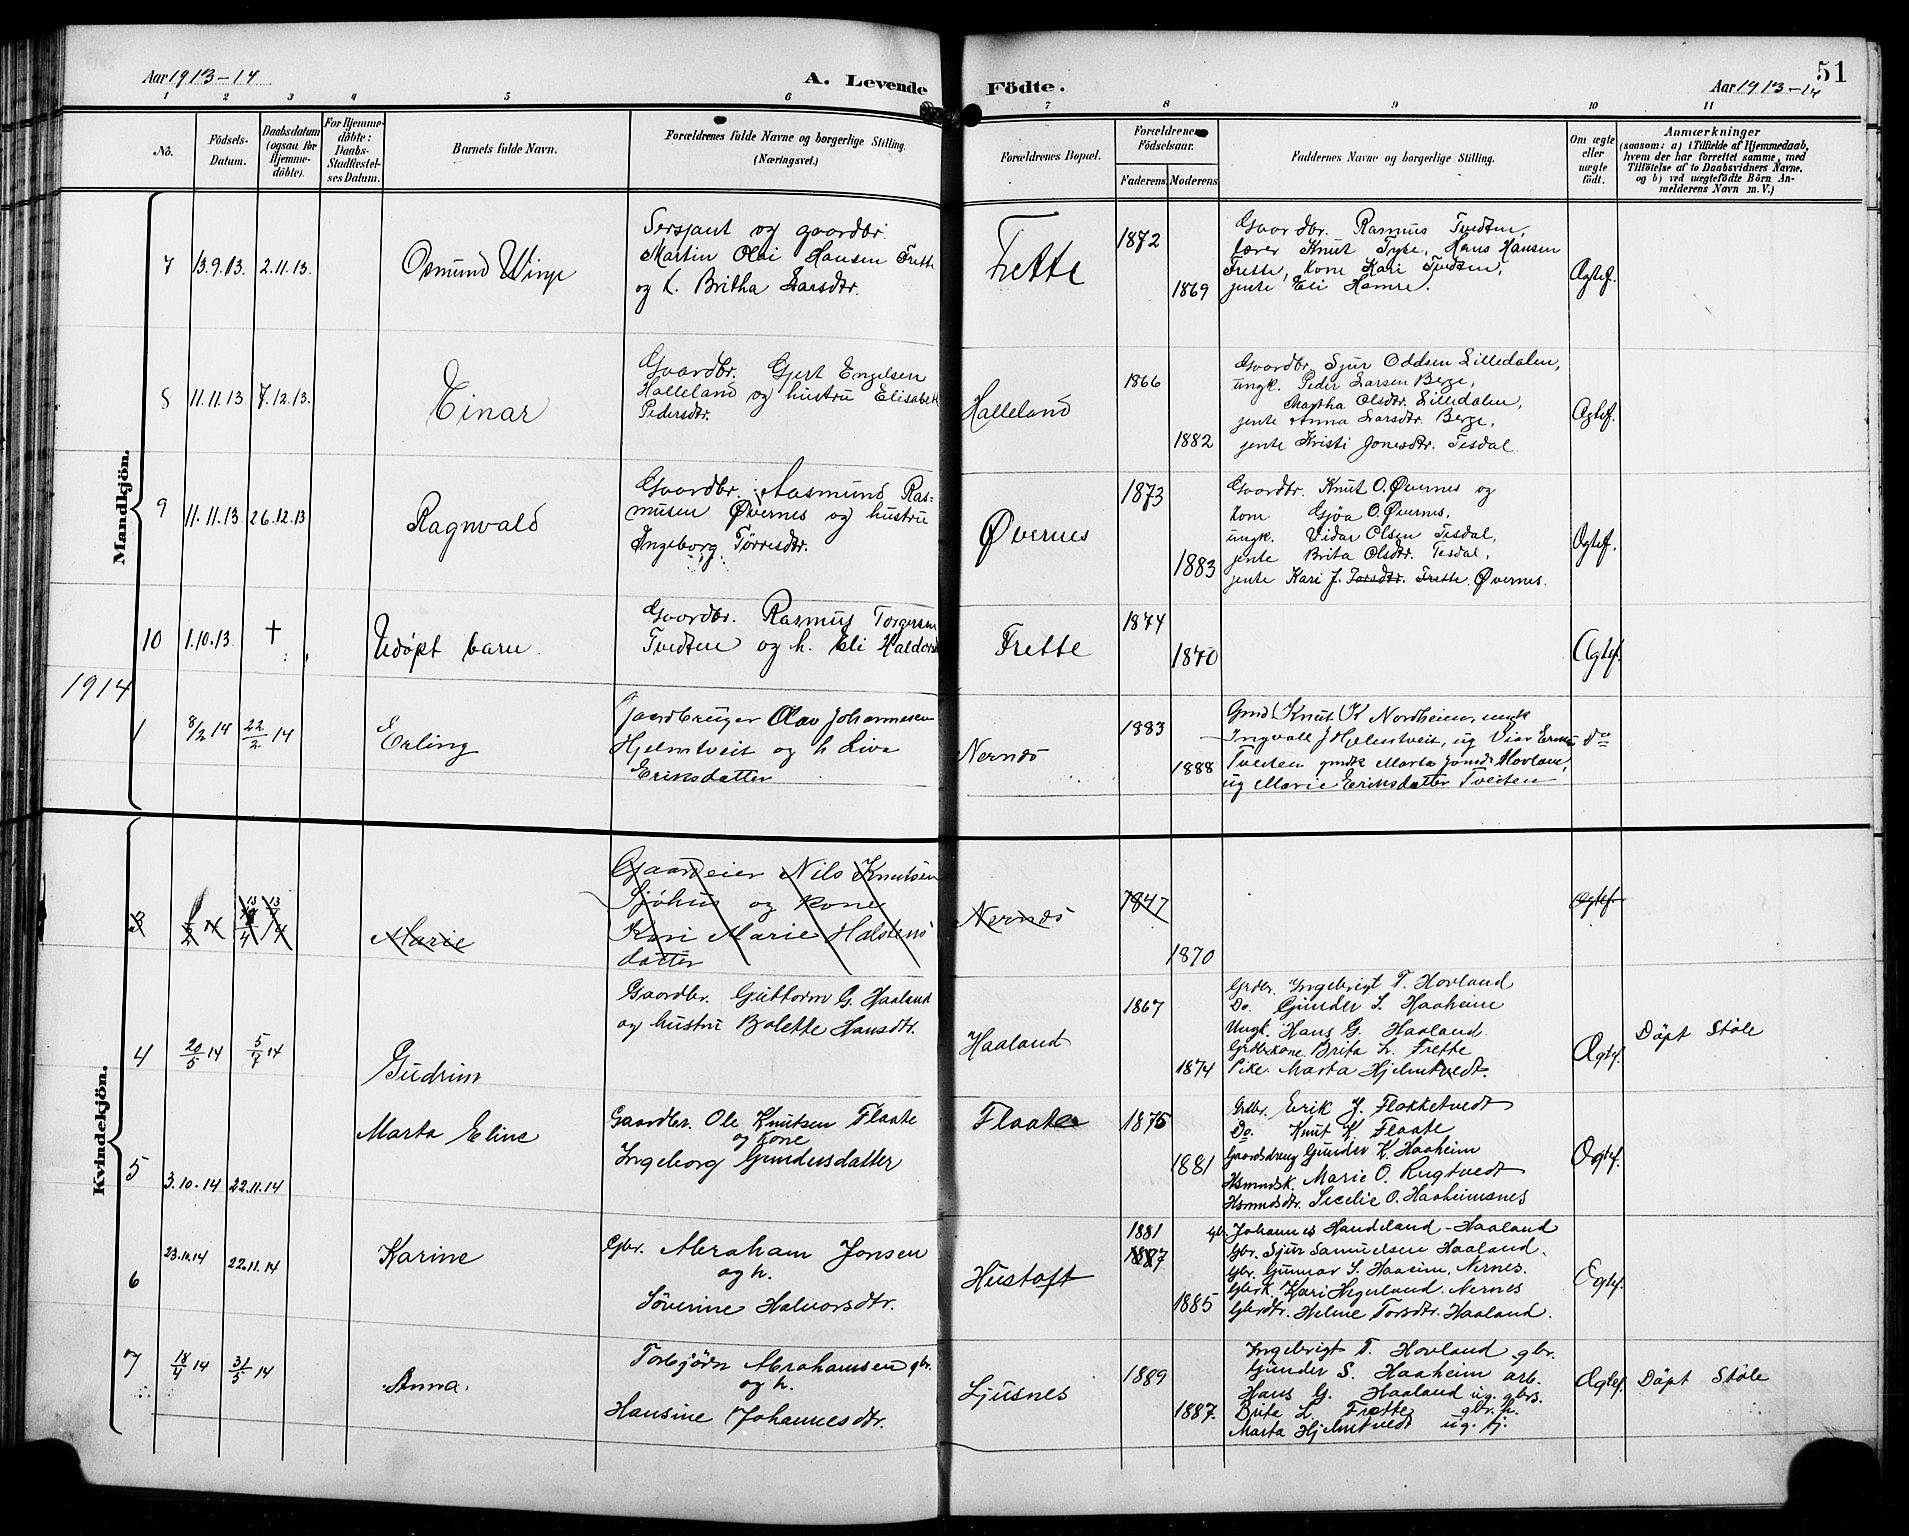 Aar 1913-14
A. Levende Födte.
Aar 1913-14
51
1 2 3 4 5 6 7 8 9 10 11
No.
Födsels-Datum.
Daabsdatum (ogsaa for Hjemme-döbte).
For Hjemme-döbte: Daabs-Stadfæstel-ses Datum.
Barnets fulde Navn.
Forældrenes fulde Navne og borgerlige Stilling.
(Næringsvei.)
Forældrenes Bopæl.
Forældrenes Födselsaar.
Faderens. Moderens.
Faddernes Navne og borgerlige Stilling.
Om ægte eller uægte födt.
Anmærkninger
(saasom: a) i Tilfælde af Hjemmedaab,
hvem der har forrettet samme, med
Tilföielse af to Daabsvidners Navne.
og b) ved uægtefödte Börn An-
melderens Navn m. V.)
Mandkjön.
7 13.9.13. 2.11.13. Osmund Winje
Sersjant og gaardbr.
Martin Olai Hansen Frette
og h. Britha Larsdtr.
Frette 1872 1869
Gaardbr. Rasmus Tvedten,
lærer Knut Tyse, Hans Hansen
Frette, kone Kari Tvedten,
jente Eli Hamre.
Ægtef.
8 11.11.13 7.12.13. Einar
Gaardbr. Gjert Engelsen
Halleland og hustru Elisabeth
Pedersdtr.
Halleland 1866 1882
Gaardbr Sjur Oddsen Lilledalen,
ungk. Peder Larsen Berge,
Martha Olsdtr. Lilledalen,
jente Anna Larsdtr. Berge,
jente Kristi Jonesdtr. Tesdal.
Ægtef.
9 11.11.13. 26.12.13 Ragnvald
Gaardbr. Aasmund Ras-
musen Øvernes og hustru
Ingeborg Tørresdtr.
Øvernes 1873 1883
Gaardbr. Knut O. Øvernes og
kone Gjøa O. Øvernes,
ungk. Vidar Olsen Tesdal,
jente Brita Olsdtr. Tesdal,
jente Kari J. Frette Øvernes.
Ægtef.
10 1.10.13. † Udøpt barn.
Gaardbr. Rasmus Torgersen
Tvedten og h. Eli Haldorsd
Frette 1874 1870
Ægtef.
1914
1 8/2 14 22/2 14 Erling
Gaardbruger Olav Johannesen
Hjelmtveit og h Liva
Eriksdatter
Nernæs 1883 1888
Gmd Knut K Nordheim, ungk
Ingvald J Hjelmtveit, ug
Tveiten Marta Hovland,
ug Marie Eriksdatter Tveiten
Do
Kvindekjön.
3 Marie
Gaardeier Nils Knutsen
Sjøhus og kone
Kari Marie Halstens
datter
Nernæs 1847 1870
Ægtef
4 20/5 14 5/7 14 Gudrun
Gaardbr. Guttorm G. Haaland
og hustru Bolette Hansdtr.
Haaland 1867 1874
Grdbr. Ingebrigt T. Hovland
Do. Gunder S. Haaheim
Ungk. Hans G. Haaland.
Grdbrkone. Brita L. Frette
Pike. Marta Hjelmtvedt.
Ægtef.
Døpt Støle
5 3.10.14 22.11.14 Marta Eline
Gaardbr. Ole Knutsen Flaate
og kone
Ingeborg Gundersdatter
Flaate 1875 1881
Grdbr. Erik J. Flokketvedt
Do. Knut K. Flaate
Gaardsdreng Gunder K. Haaheim
Hsmndsk. Marie O. Rugtvedt
Hsmndsdtr. Secelie O. Haaheimsnes
Ægtef.
6 23.10.14 22.11.14 Karine
Gbr. Abraham Jonsen
og h.
Søverine Halvorsdtr.
Hustoft 1881 1887 1885
Gbr. Johannes Handeland - Haaland
Gbr. Sjur Samuelsen Haaland.
Gbr. Gunnar S. Haaeim, Nernes.
Gbrk. Kari Hegerland. Nernes
Gbrdtr. Helene Torsdtr. Haaland.
Egtef.
7 18/4 14 31/5 14 Anna.
Torbjørn Abrahamsen gbr.
og h.
Hansine Johannesdtr.
Ljusnes 1889 1887.
Ingebrigt T. Hovland gbr.
Gunder S. Haaheim arb.
Hans G. Haaland ug. gbrs.
Brite L. Frette gbr. h.
Marta Hjelmtvedt ug. pj.
Ægtef.
Døpt Støle